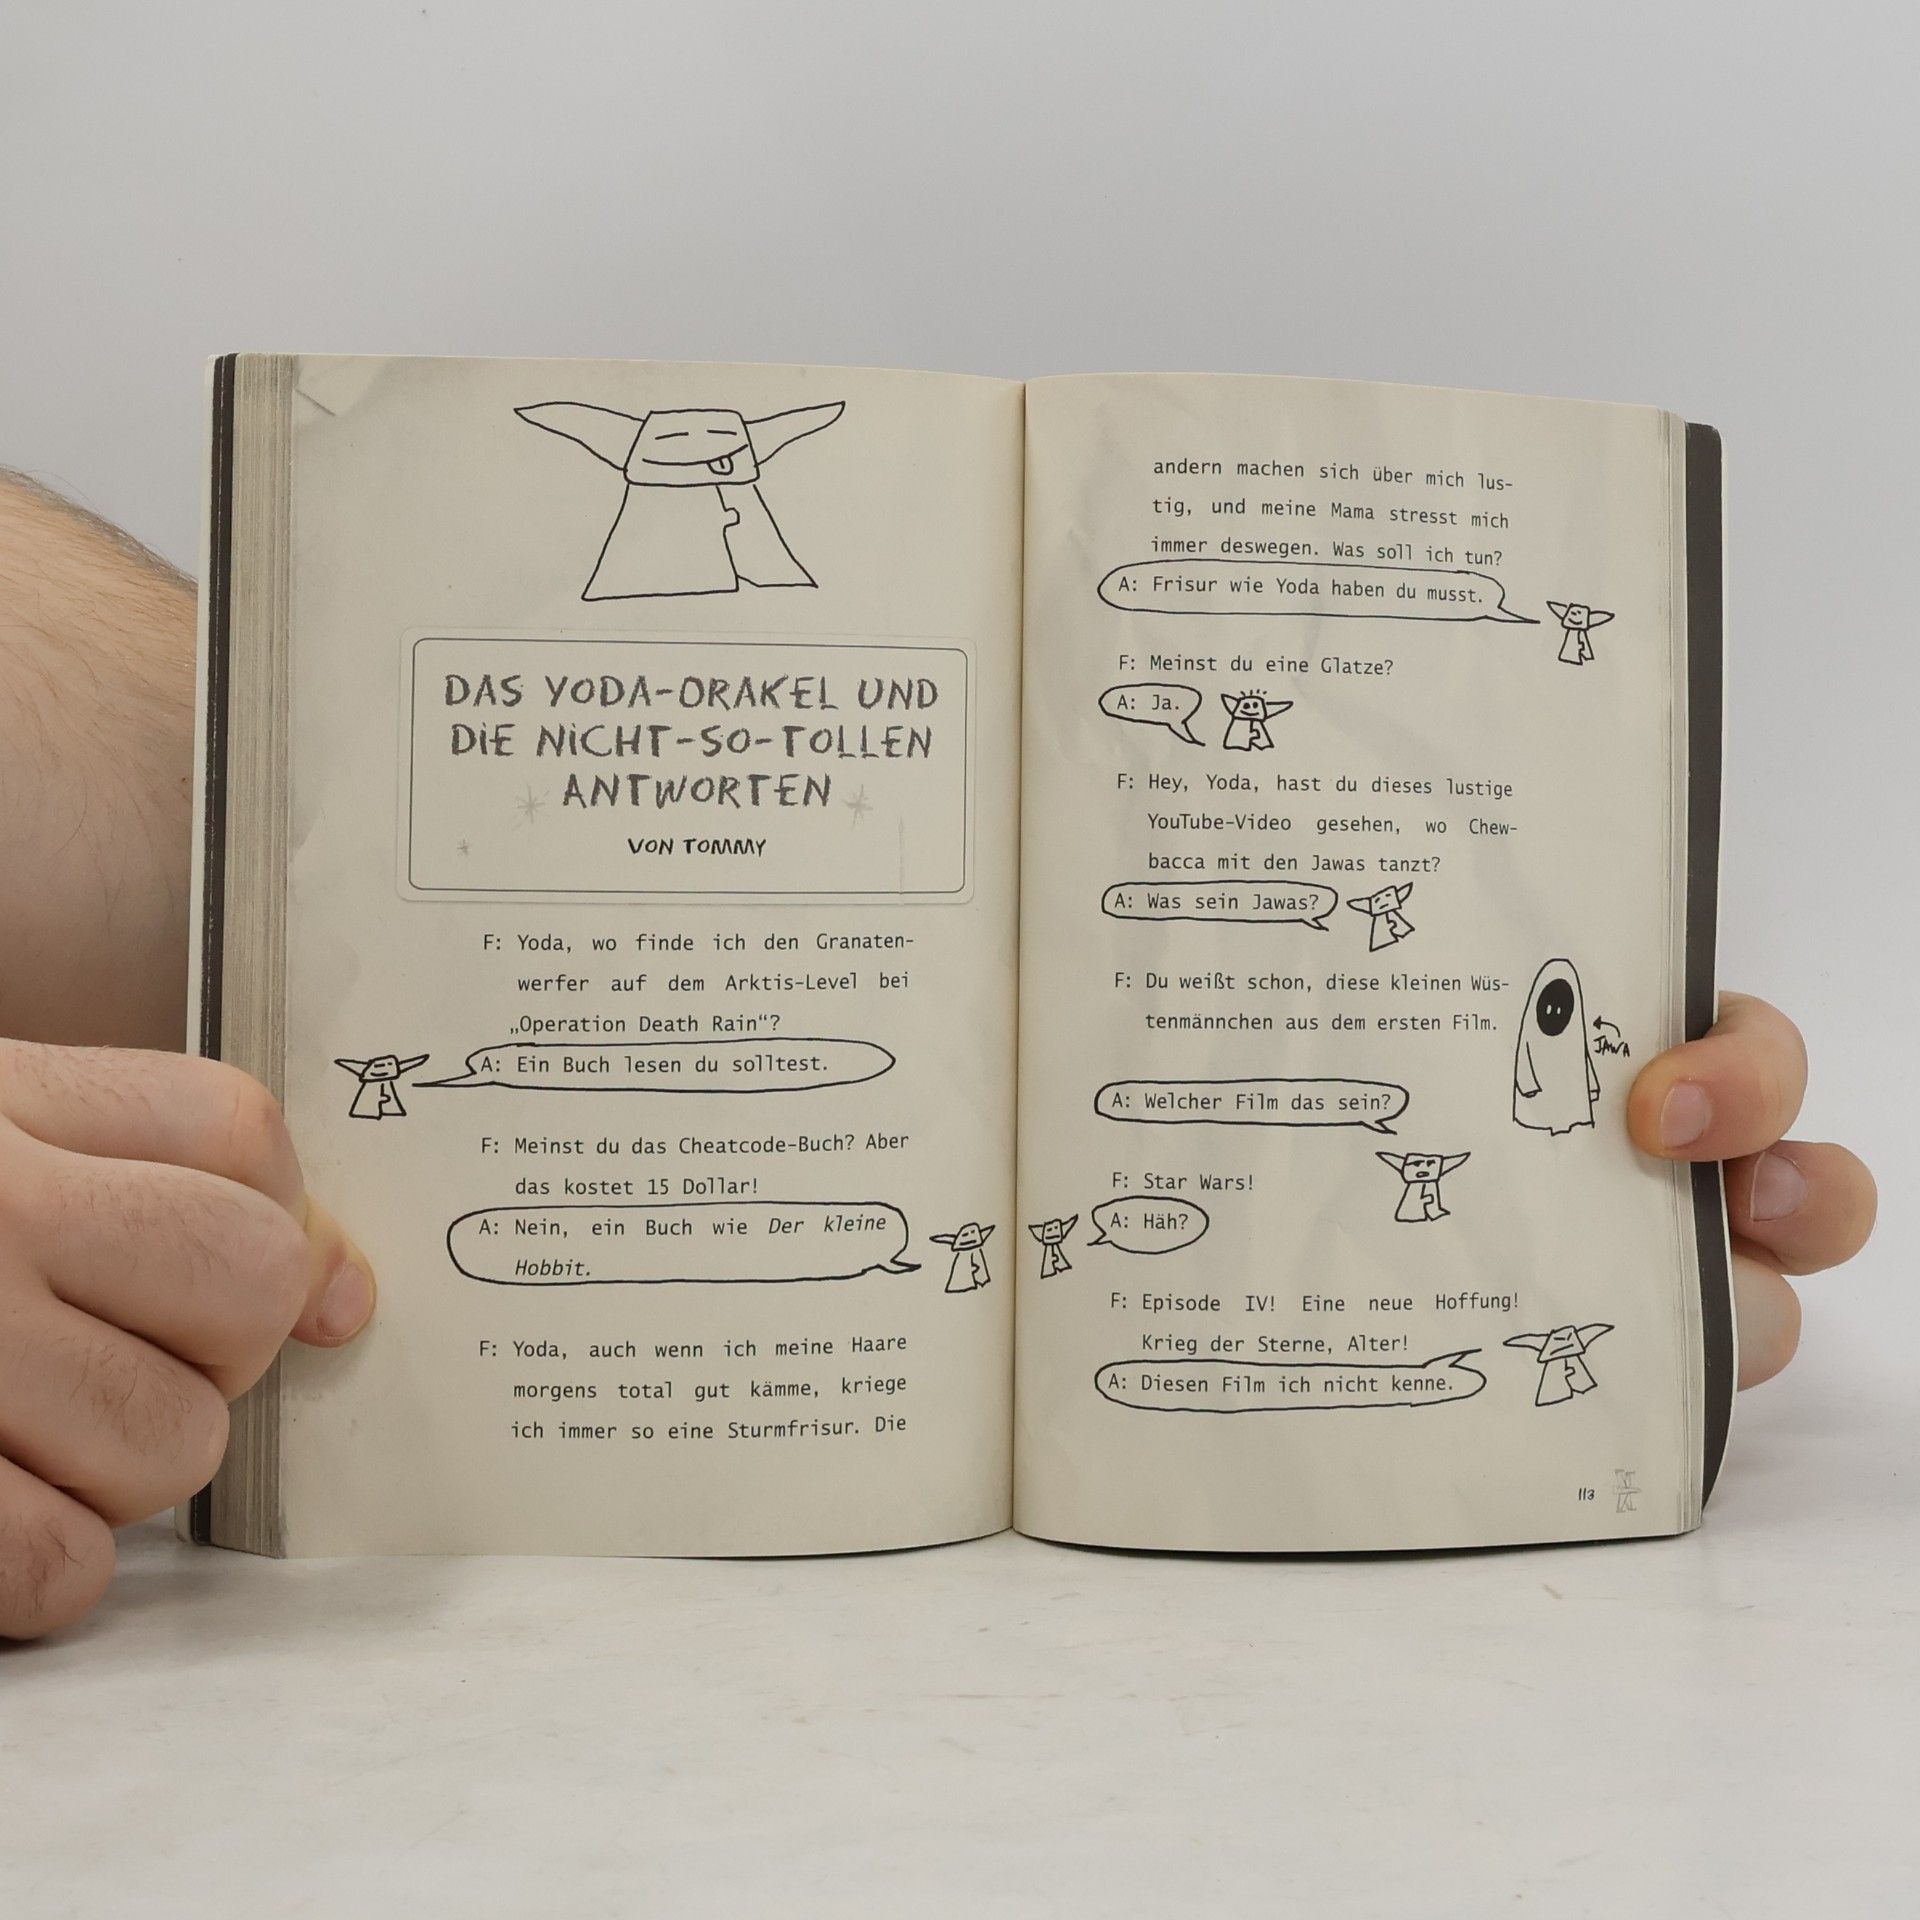 DAS YODA-ORAKEL UND
DIE NICHT-SO-TOLLEN
ANTWORTEN
VON TOMMY
F: Yoda, wo finde ich den Granaten-
werfer auf dem Arktis-Level bei
„Operation Death Rain“?
A: Ein Buch lesen du solltest.
F: Meinst du das Cheatcode-Buch? Aber
das kostet 15 Dollar!
A: Nein, ein Buch wie Der kleine
Hobbit.
F: Yoda, auch wenn ich meine Haare
morgens total gut kämme, kriege
ich immer so eine Sturmfrisur. Die
andern machen sich über mich lus-
tig, und meine Mama stresst mich
immer deswegen. Was soll ich tun?
A: Frisur wie Yoda haben du musst.
F: Meinst du eine Glatze?
A: Ja.
F: Hey, Yoda, hast du dieses lustige
YouTube-Video gesehen, wo Chew-
bacca mit den Jawas tanzt?
A: Was sein Jawas?
F: Du weißt schon, diese kleinen Wüs-
tenmännchen aus dem ersten Film.
JAWA
A: Welcher Film das sein?
F: Star Wars!
A: Häh?
F: Episode IV! Eine neue Hoffung!
Krieg der Sterne, Alter!
A: Diesen Film ich nicht kenne.
113